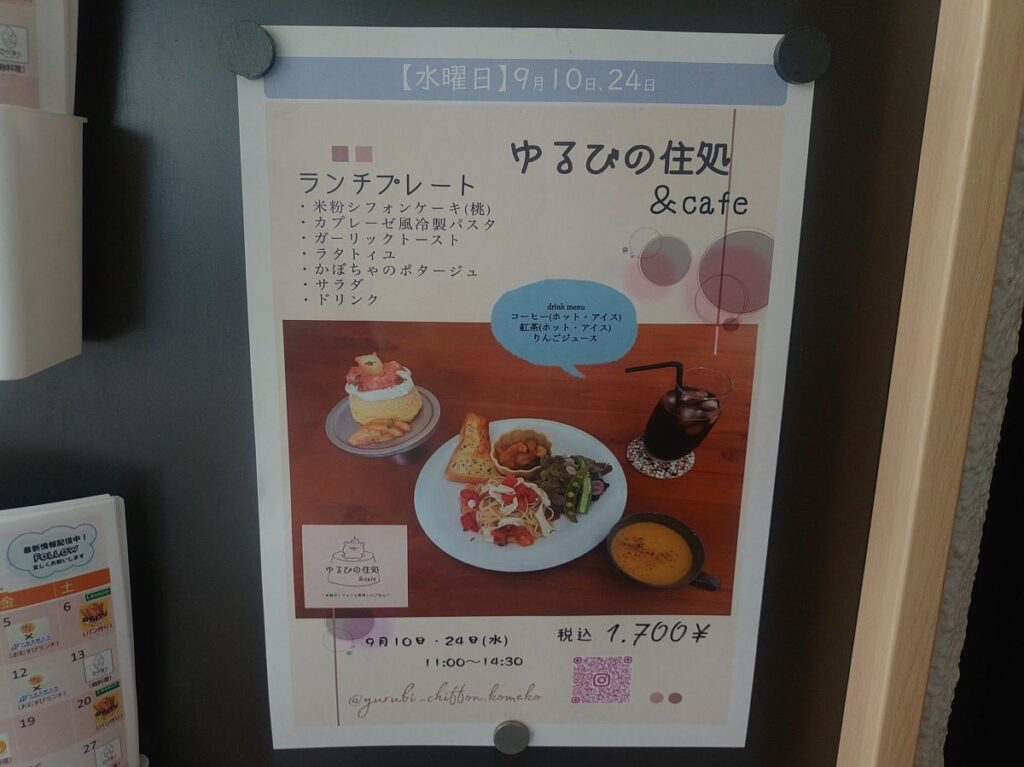 【水曜日】9月10日、24日
ゆるびの住処
&cafe
ランチプレート
・米粉シフォンケーキ(桃)
・カプレーゼ風冷製パスタ
・ガーリックトースト
・ラタトィユ
・かぼちゃのポタージュ
・サラダ
・ドリンク
drink menu
コーヒー(ホット・アイス)
紅茶(ホット・アイス)
りんごジュース
ゆるびの住処
&cafe
9月10日・24日(水)
11:00〜14:30
税込 1.700¥
@yurubi_chiffon.komeko
最新情報配信中！
FOLLOW
宜しくお願いします
金 土
5 6
(おむすびランチ) (パン作り)
12 13
19 20
(パン作り)
27